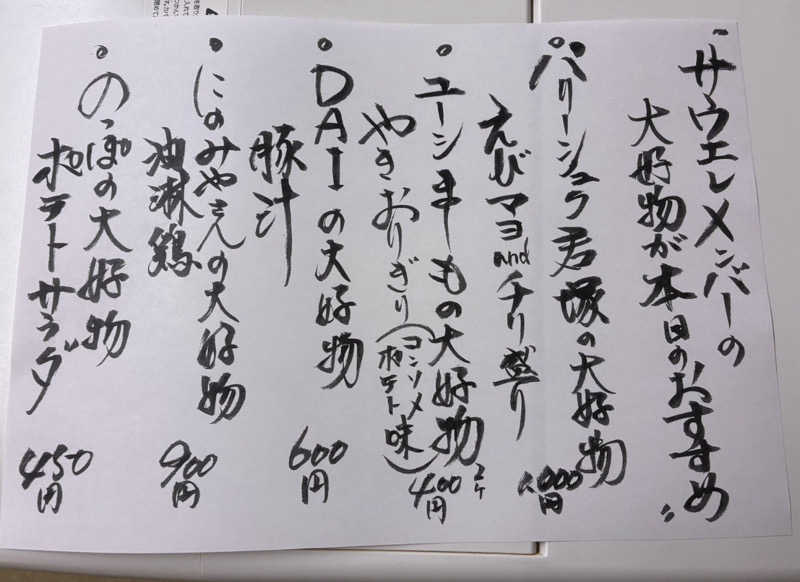 "サウエレメンバーの
大好物が本日のおすすめ"
パリーシュク君塚の大好物
えびマヨandチリ盛り
1,000円
ユーシキーもの大好物
やきおりぎり(コンソメポテト味)
2ヶ
400円
DAIの大好物
豚汁
600円
にのみやさんの大好物
油淋鶏
900円
のっぽの大好物
ポテトサラダ
450円